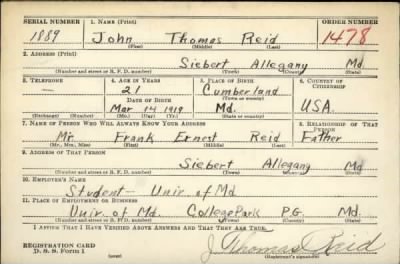 SERIAL NUMBER 1. NAME (Print) ORDER NUMBER
1889 John Thomas Reid 1478
(First) (Middle) (Last)
2. ADDRESS (Print)
Siebert Allegany Md.
(Number and street or R. F. D. number) (Town) (County) (State)
3. TELEPHONE 4. AGE IN YEARS 5. PLACE OF BIRTH 6. COUNTRY OF CITIZENSHIP
21 Cumberland
(Town or county)
DATE OF BIRTH
Mar 14 1919 Md. USA.
(Exchange) (Number) (Mo.) (Day) (Yr.) (State or country)
7. NAME OF PERSON WHO WILL ALWAYS KNOW YOUR ADDRESS 8. RELATIONSHIP OF THAT PERSON
Mr. Frank Ernest Reid Father
(Mr., Mrs., Miss) (First) (Middle) (Last)
9. ADDRESS OF THAT PERSON
Siebert Allegany Md
(Number and street or R. F. D. number) (Town) (County) (State)
10. EMPLOYER'S NAME
Student - Univ. of Md
11. PLACE OF EMPLOYMENT OR BUSINESS
Univ. of Md. College Park P.G. Md.
(Number and street or R. F. D. number) (Town) (County) (State)
I AFFIRM THAT I HAVE VERIFIED ABOVE ANSWERS AND THAT THEY ARE TRUE.
REGISTRATION CARD
D. S. S. Form 1
J. Thomas Reid
(Registrant's signature)